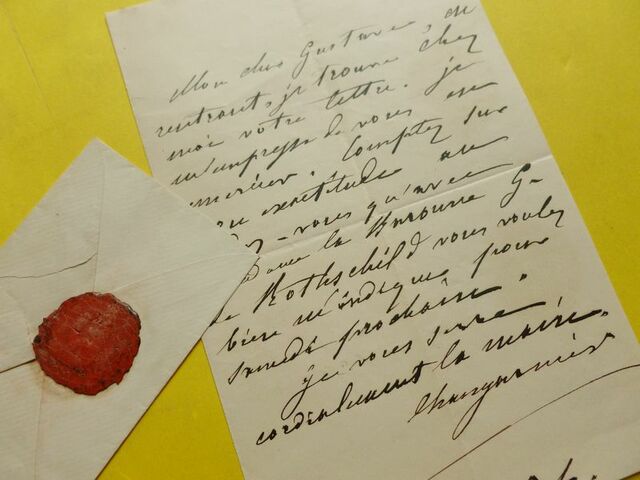 Mon cher Gustave, en
rentrant, je trouve chez
moi votre lettre. je
m'empresse de vous en
remercier. Comptez sur
exactitude au
-vous qu'avec
la Baronne G.
de Rothschild vous voulez
bien m'indiquer pour
samedi prochain.
je vous serre
cordialement la main.
Changarnier